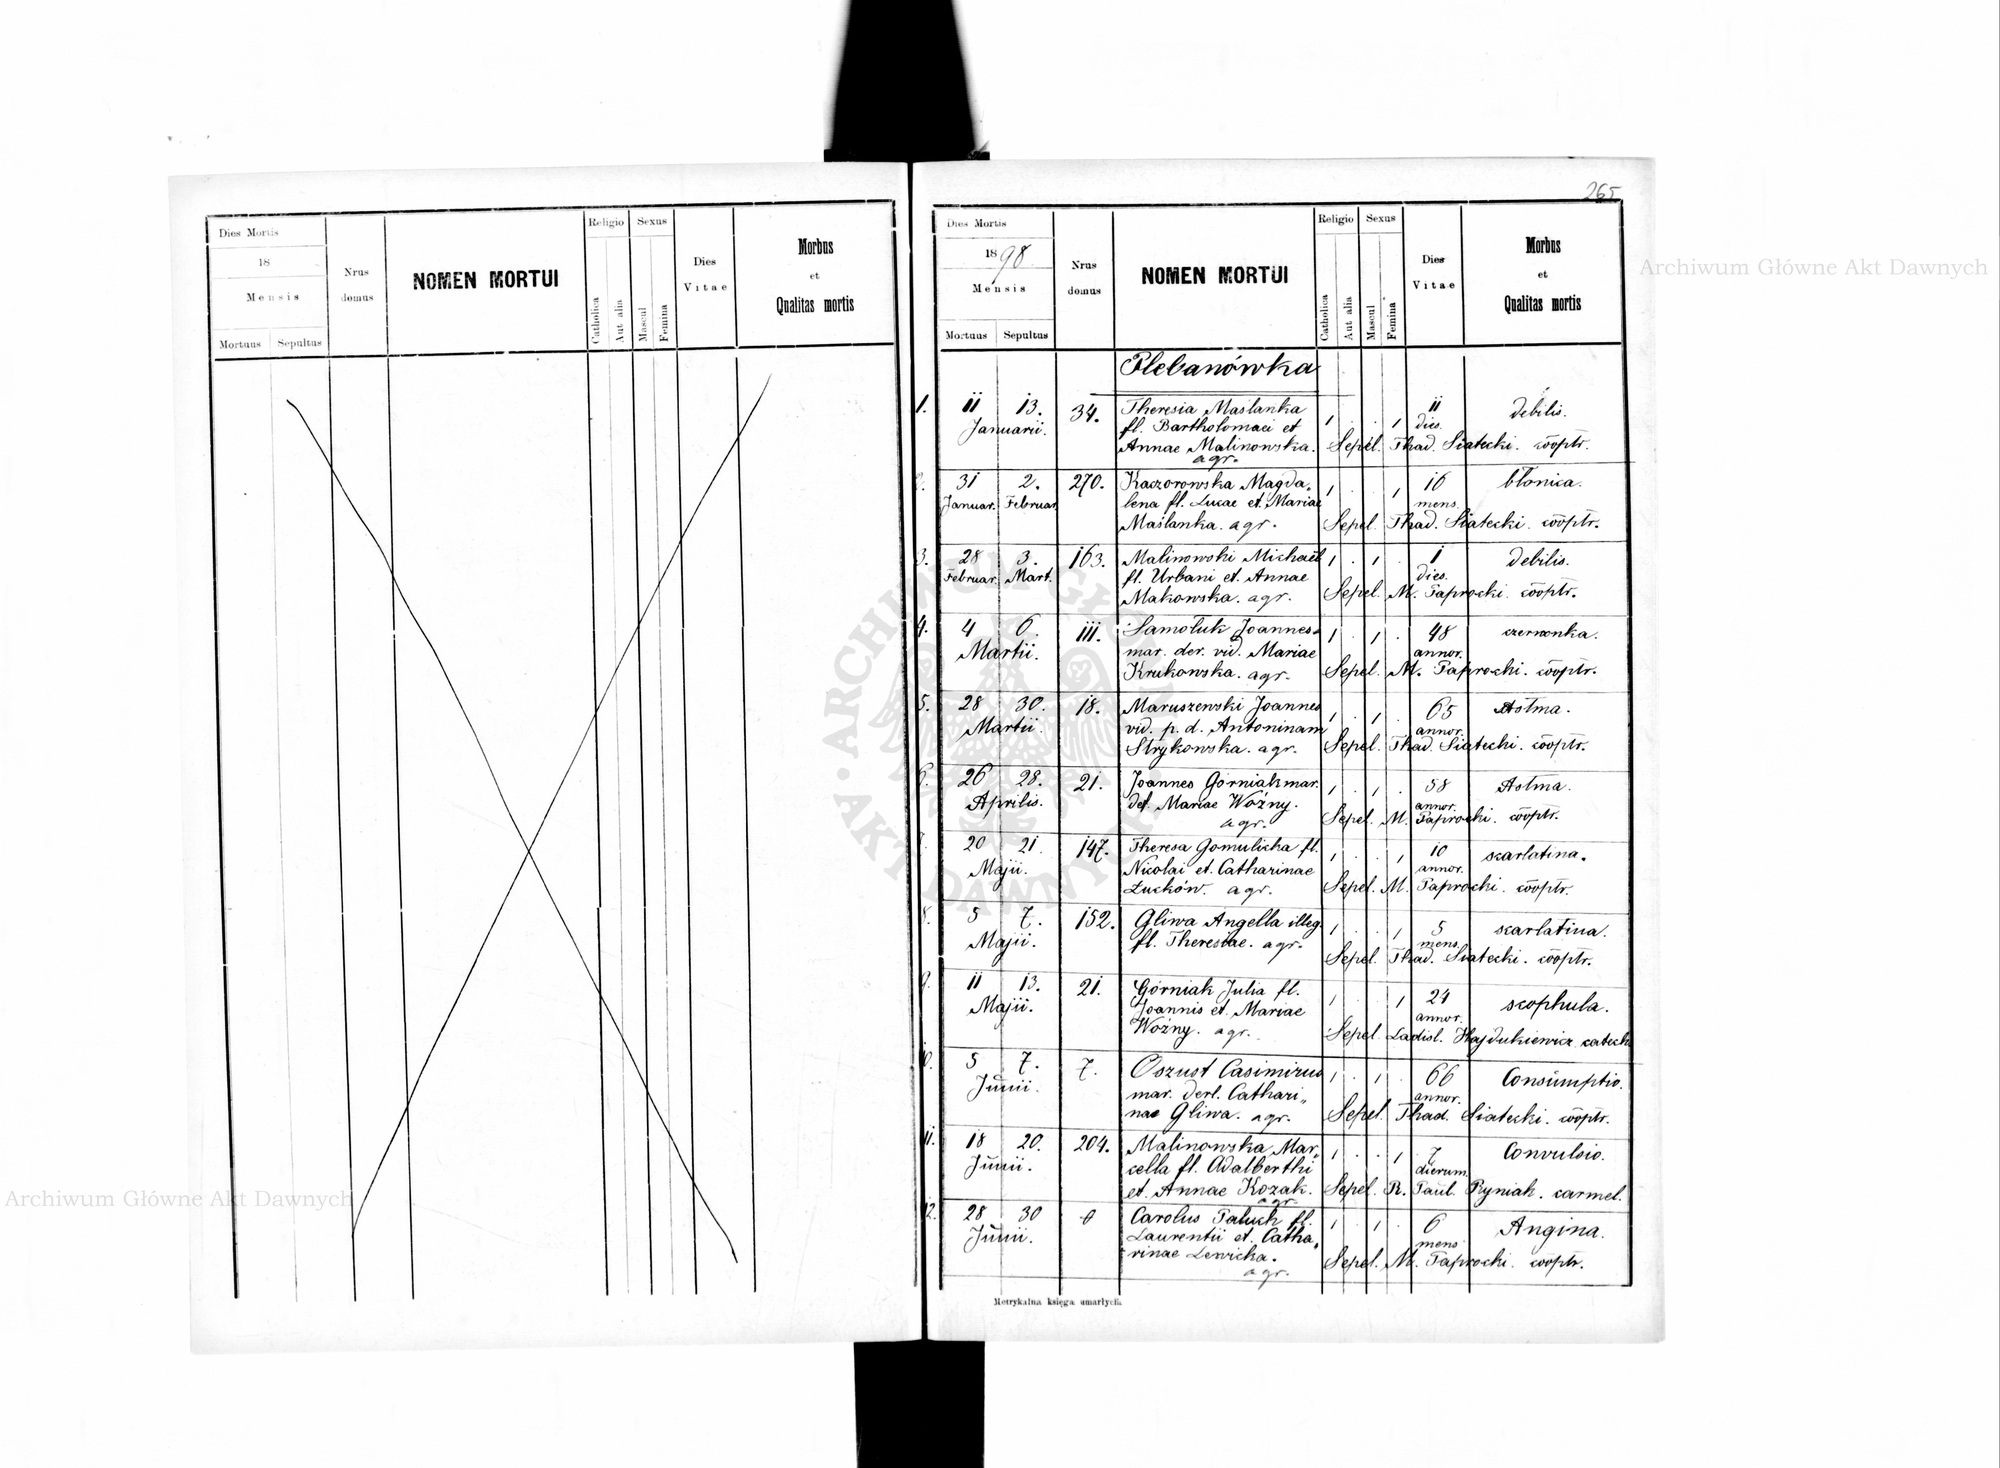 Dies Mortis
18
Mensis
Mortuus Sepultus
Nrus
domus
NOMEN MORTUI
Religio
Catholica
Aut alia
Sexus
Mascul
Femina
Dies
Vitae
Morbus
et
Qualitas mortis
265
Dies Mortis
1898
Mensis
Mortuus Sepultus
Nrus
domus
NOMEN MORTUI
Religio
Catholica
Aut alia
Sexus
Mascul
Femina
Dies
Vitae
Morbus
et
Qualitas mortis
Plebanówka
1. 11 13. 34. Theresia Maślanka 1 . . 1 11 Debilis.
Januarii. fl. Bartholomaei et dies.
Annae Malinowska. Sepel. Thad. Siatecki. cööptr.
agr.
2. 31 2. 270. Kaczorowska Magda„ 1 . . 1 16 błonica.
Januar. Februar. lena fl. Lucae et Mariae mens.
Maślanka. agr. Sepel. Thad. Siatecki. cööptr.
3. 28 3. 163. Malinowski Michael 1 . 1 . 1 Debilis.
Februar. Mart. fl. Urbani et Annae dies.
Makowska. agr. Sepel. M. Paprocki. cööptr.
4. 4 6. 111. Samoluk Joannes 1 . 1 . 48 czerwonka.
Martii. mar. der. vid. Mariae annor.
Krukowska. agr. Sepel. M. Paprocki. cööptr.
5. 28 30. 18. Maruszewski Joannes 1 . 1 . 65 Astma.
Martii. vid. p. d. Antoninam annor.
Strykowska. agr. Sepel. Thad. Siatecki. cööptr.
6. 26 28. 21. Joannes Górniak mar. 1 . 1 . 58 Astma.
Aprilis. del. Mariae Woźny. annor.
agr. Sepel. M. Paprocki. cööptr.
7. 20 21. 147. Theresa Gomulicka fl. 1 . . 1 10 scarlatina.
Majii. Nicolai et Catharinae annor.
Łucków. agr. Sepel. M. Paprocki. cööptr.
8. 5 7. 152. Gliwa Angella illeg. 1 . . 1 5 scarlatina.
Majii. fl. Theresiae. agr. mens.
Sepel. Thad. Siatecki. cööptr.
9. 11 13. 21. Górniak Julia fl. 1 . . 1 24 scophula.
Majii. Joannis et Mariae annor.
Woźny. agr. Sepel. Ladisl. Hajdukiewicz catech.
10. 5 7. 7. Oszust Casimirus 1 . 1 . 66 Consumptio.
Junii. mar. derl. Cathari„ annor.
nae Gliwa. agr. Sepel. Thad. Siatecki. cööptr.
11. 18 20. 204. Malinowska Mar„ 1 . . 1 7 Convulsio.
Junii. cella fl. Adalberthi dierum
et Annae Kozak. Sepel. R. Paul. Ryniak. carmel.
agr.
12. 28 30 0 Carolus Paluch fl. 1 . 1 . 6 Angina.
Junii. Laurentii et Catha„ mens
rinae Lewicka. Sepel. M. Paprocki. cööptr.
agr.
Metrykalna księga umarłych
Archiwum Główne Akt Dawnych
Archiwum Główne Akt Dawnych
ARCHIWUM GŁÓWNE AKT DAWNYCH